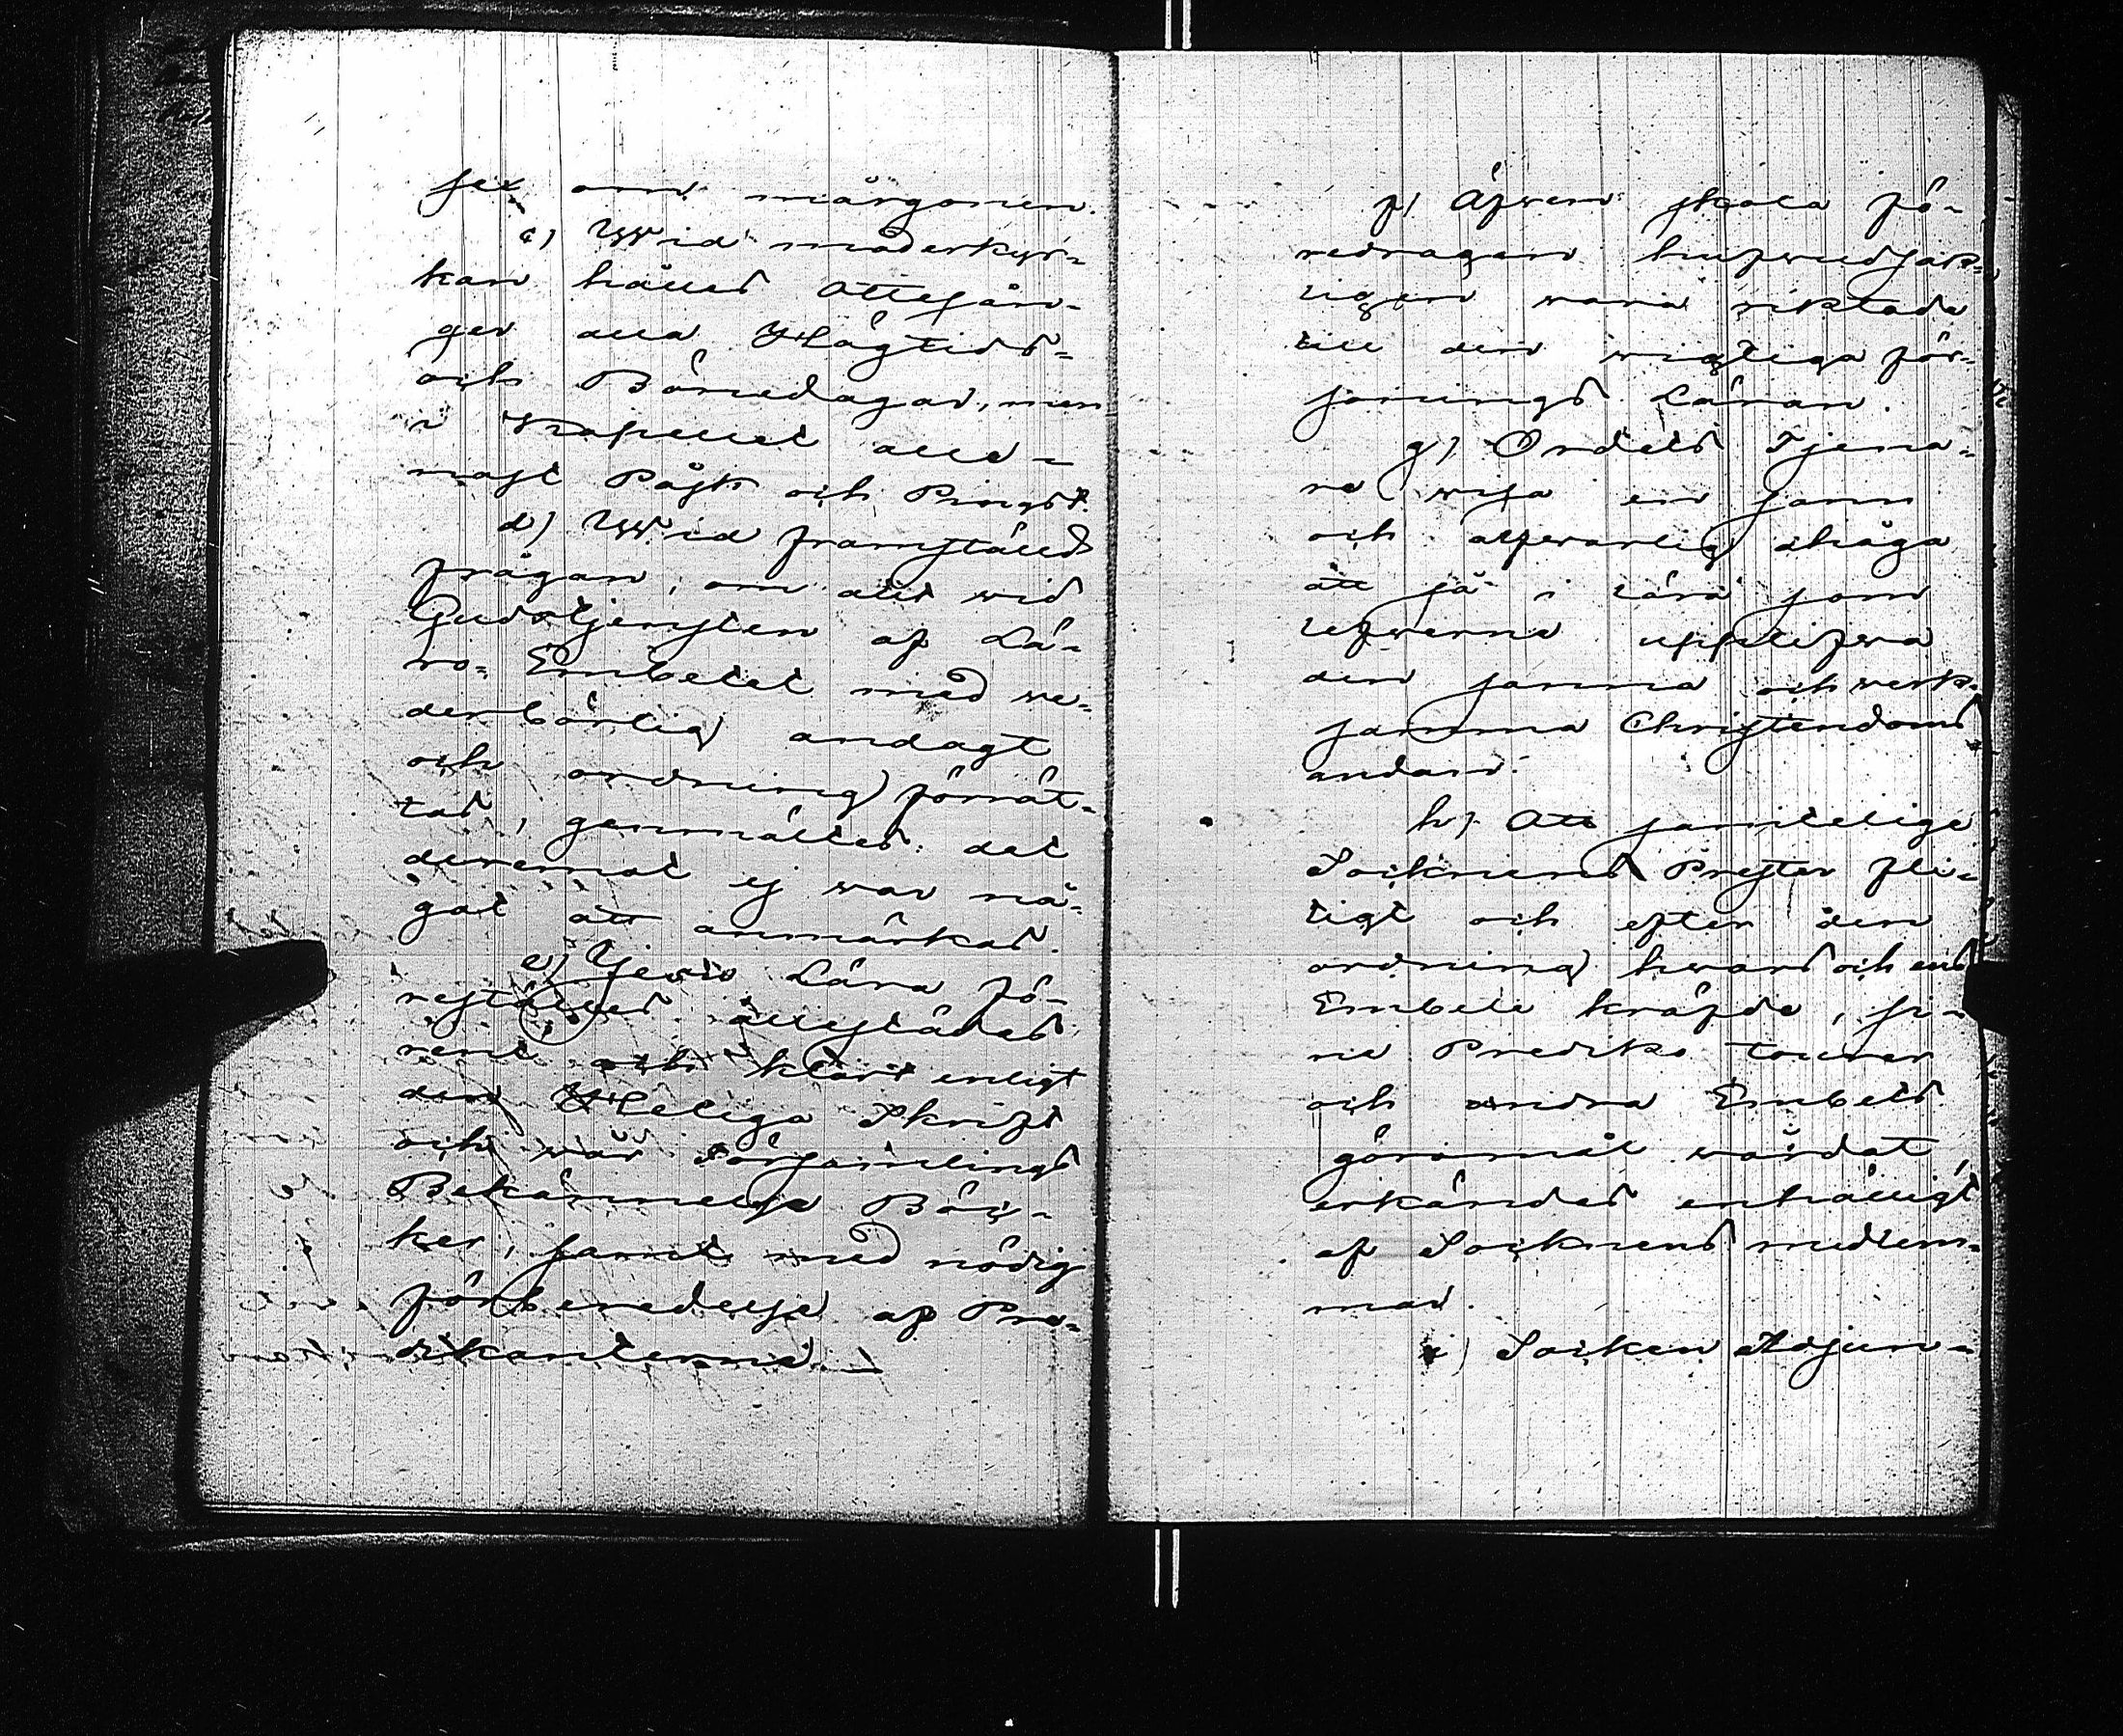 sex om morgonen.
c) Wid moderkyr-
kan hålles Ottesån-
ger alla Högtids-
och Bönedagar, men
i Kapellet alle-
nast Påsk och Pingst.
d) Wid framstälda
frågan, om allt wid
Gudstjensten af Lä-
ro-Embetet med we-
derbörlig andagt
och ordning förrät-
tas, genmältes: det
deremot ej war nå-
got att anmärkas.
e) Jesu Lära fö-
reställes allestädes
rent och klart enligt
den Heliga Skrift
och wår Församlings
Bekännelse Böc-
ker, samt med nödig
förberedelse af Pre-
dikanterne.
f) Äfwen skola fö-
redragen hufwudsak-
ligen wara riktade
till den wigtiga för-
sonings Läran.
g) Ordets Tjena-
re wisa en sann
och alfwarlig åhåga
att så i lära som
lefwerne upplifwa
den sanna och werk-
samma Christendoms
andan.
h) Att samtelige
Socknens Prester fli-
tigt och efter den
ordning hwars och ens
Embete kräfde, si-
ne Prediko tourer
och andra Embets
göromål wårdat,
erkändes enhälligt
af Socknens medlem-
mar.
i) Socken Adjun-